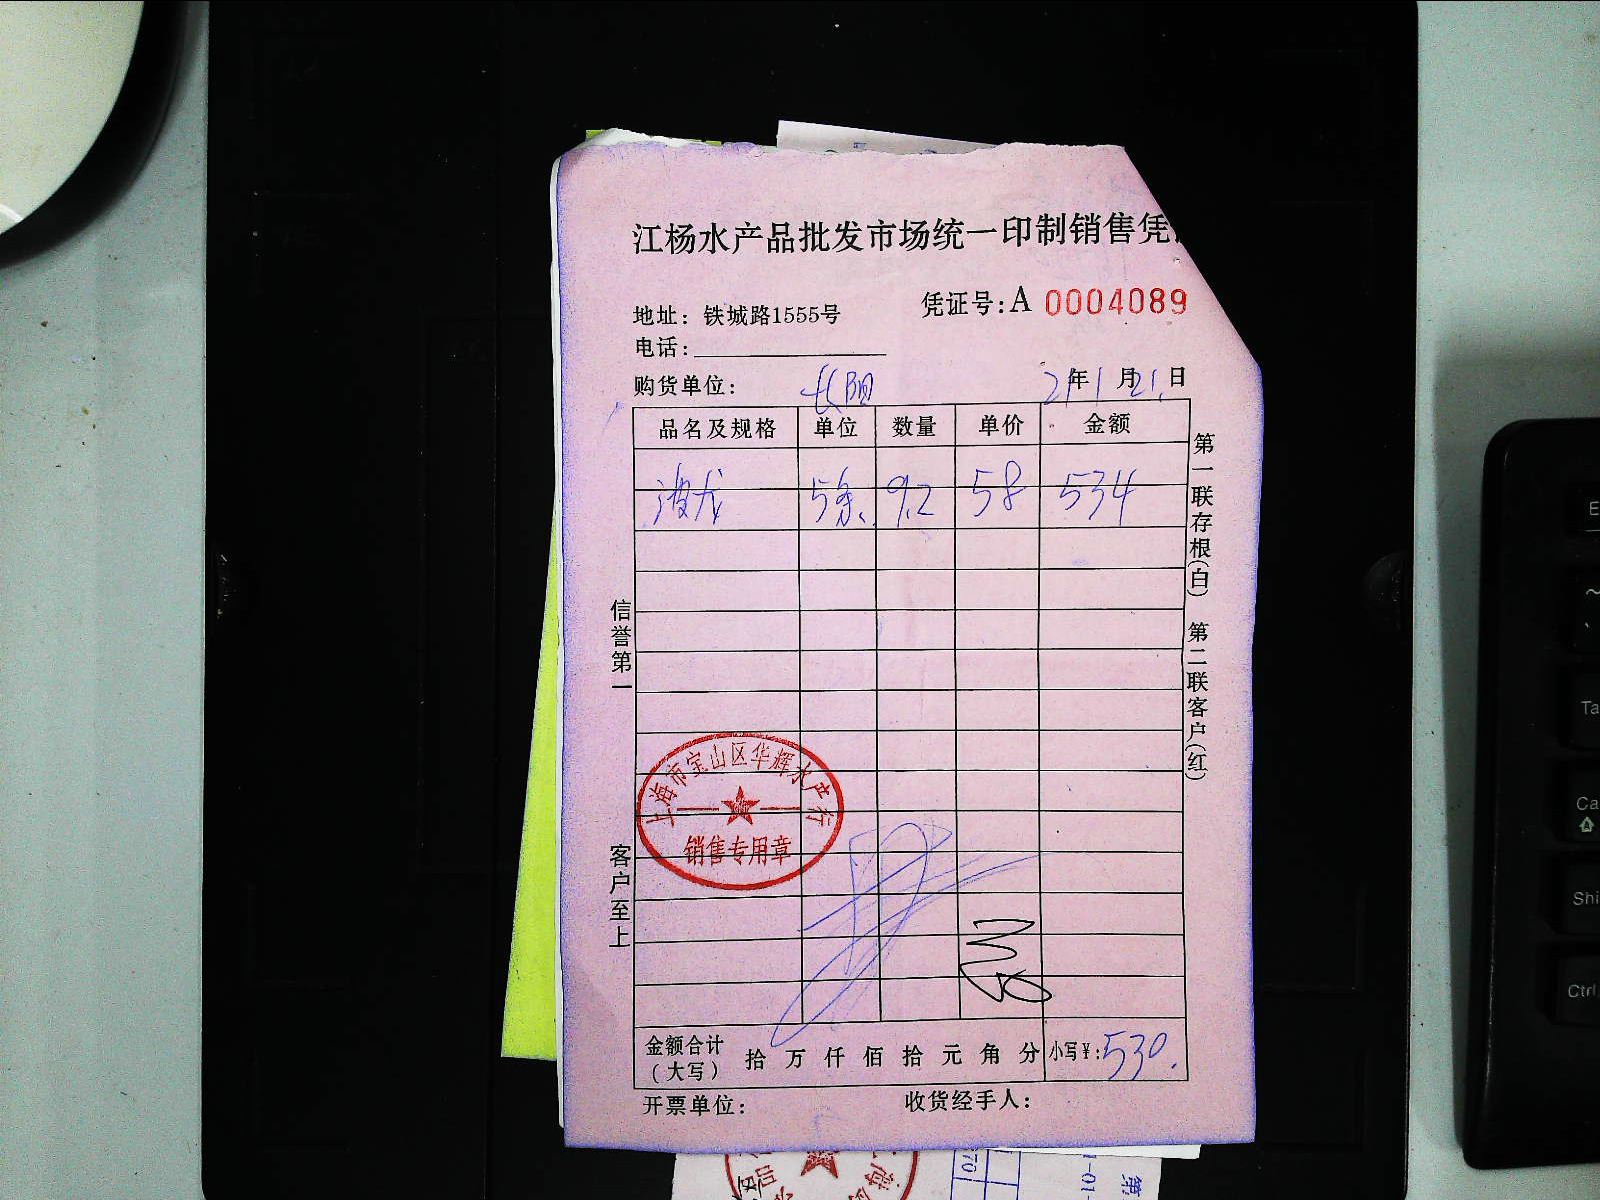 江杨水产品批发市场统一印制销售凭
地址：铁城路1555号
凭证号：A 0004089
电话：
购货单位：长阳 21年1月21日
品名及规格 单位 数量 单价 金额
波龙 5条 9.2 58 534
第一联存根（白） 第二联客户（红）
信誉第一
客户至上
上海市宝山区华辉水产行
销售专用章
金额合计（大写） 拾万仟佰拾元角分 小写¥：530.
开票单位： 收货经手人：
E
Ta
Ca
Shi
Ctrl